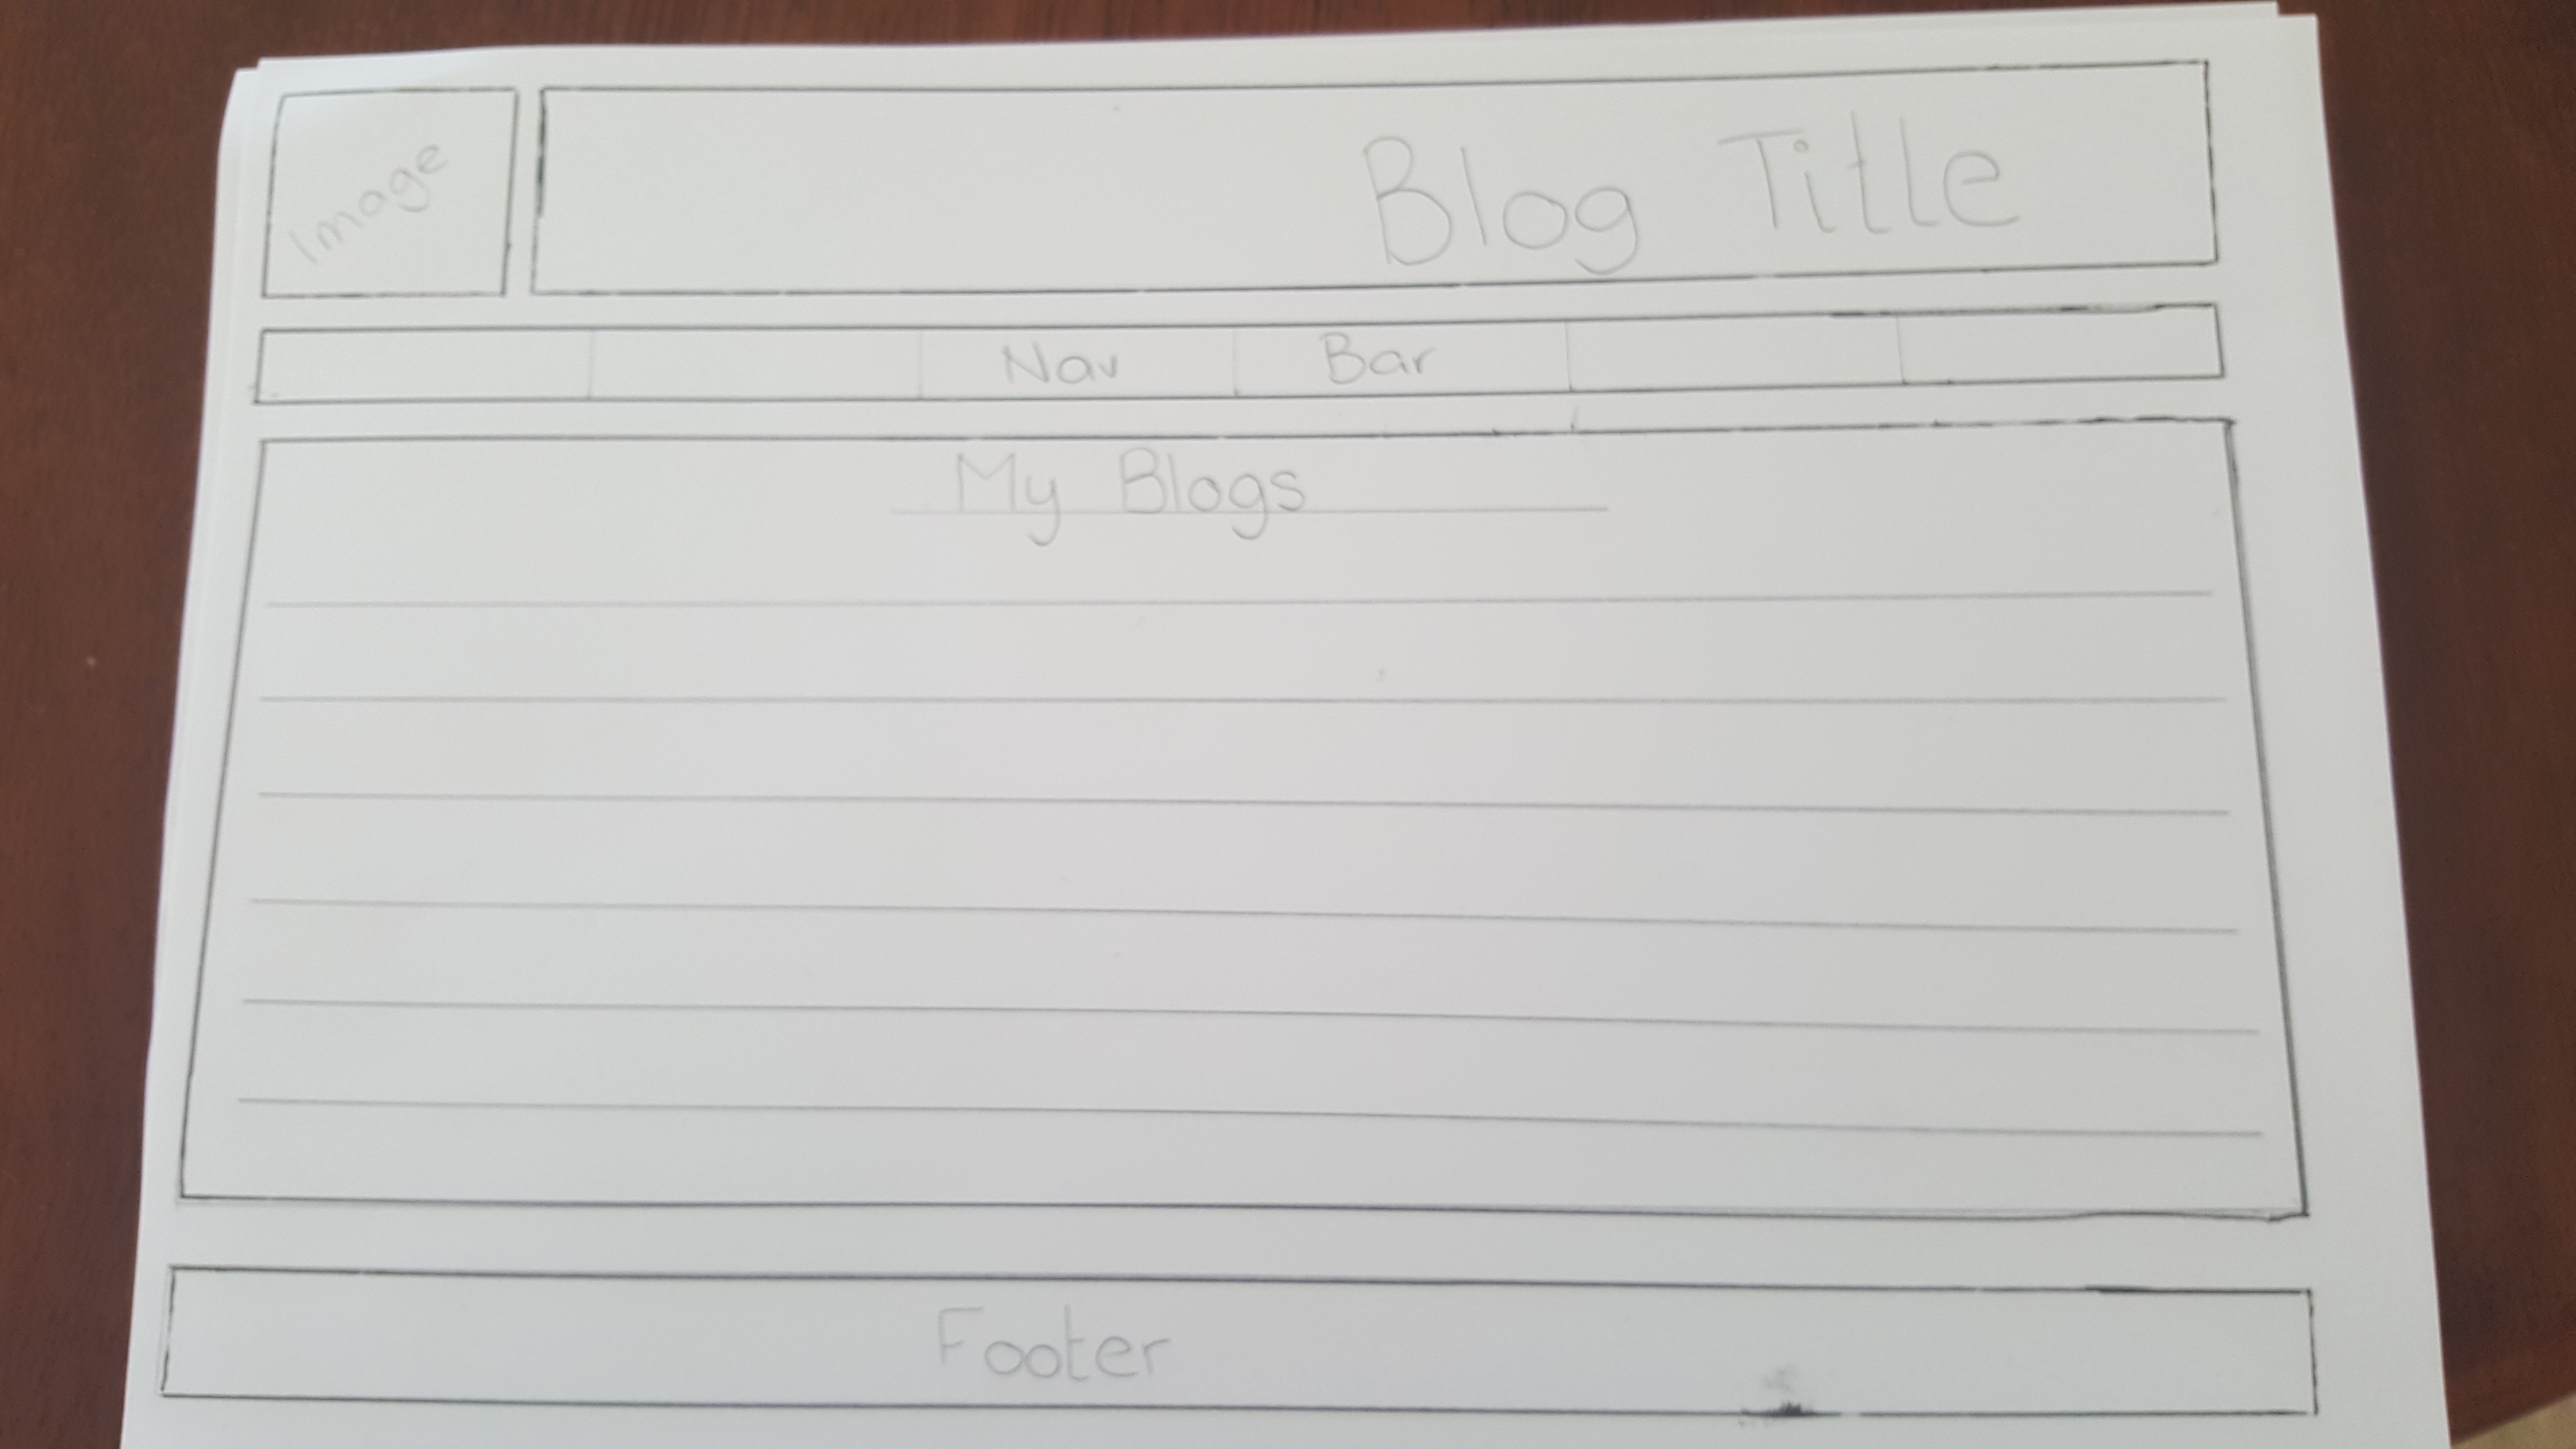 Image
Blog Title
Nav Bar
My Blogs
Footer